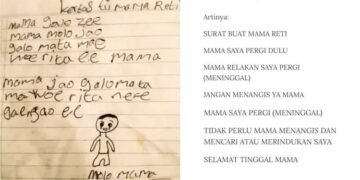 kertas tii mama Reti
mama galo zee
mama molo Jao
galo mata mae
woe rita ee mama
mama jao galo mata
mae woe rita nee
gae ngao ee
molo mama
Artinya:
SURAT BUAT MAMA RETI
MAMA SAYA PERGI DULU
MAMA RELAKAN SAYA PERGI (MENINGGAL)
JANGAN MENANGIS YA MAMA
MAMA SAYA PERGI (MENINGGAL)
TIDAK PERLU MAMA MENANGIS DAN MENCARI ATAU MERINDUKAN SAYA
SELAMAT TINGGAL MAMA